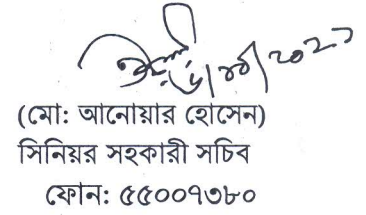 (মো: আনোয়ার হোসেন)
সিনিয়র সহকারী সচিব
ফোন: ৫৫০০৭৩৮০